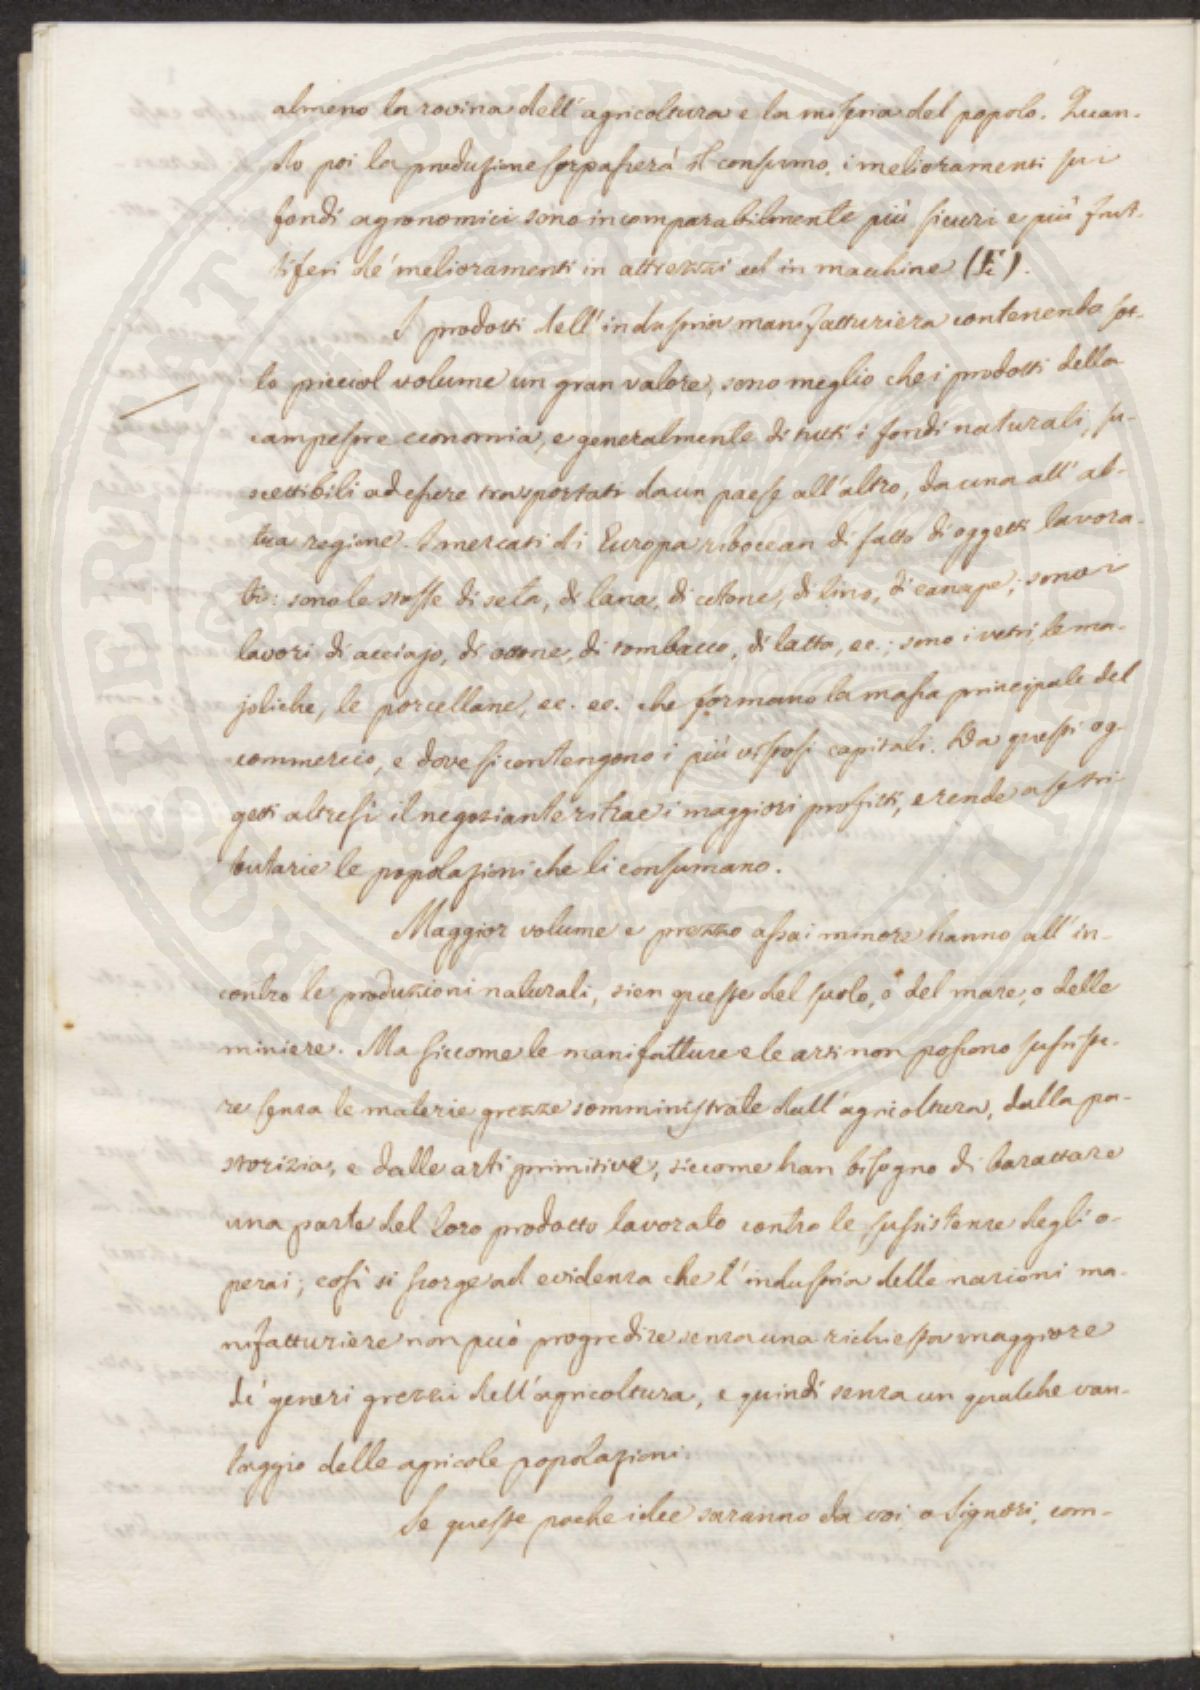 almeno la rovina dell'agricoltura e la miseria del popolo. Quan-
do poi la produzione sorpasserà il consumo, i melioramenti sui
fondi agronomici sono incomparabilmente più sicuri e più frut-
tiferi de' melioramenti in attrezzi ed in macchine
I prodotti dell'industria manifatturiera contenendo sot-
to picciol volume un gran valore, sono meglio che i prodotti della
campestre economia, e generalmente di tutti i fondi naturali, su-
scettibili ad essere trasportati da un paese all'altro, da una all'al-
tra regione. I mercati di Europa riboccan di fatto di oggetti lavora-
ti: sono le stoffe di seta, di lana, di cotone, di lino, di canape; sono i
lavori di acciajo, di ottone, di tombacco, di latta, ec.; sono i vetri, le ma-
joliche, le porcellane, ec. ec. che formano la massa principale del
commercio, e dove si contengono i più vistosi capitali. Da questi og-
getti altresì il negoziante ritrae i maggiori profitti, e rende a se tri-
butarie le popolazioni che li consumano.
Maggior volume e prezzo assai minore hanno all'in-
contro le produzioni naturali, sien queste del suolo, o del mare, o delle
miniere. Ma siccome le manifatture e le arti non possono sussiste-
re senza le materie grezze somministrate dall'agricoltura, dalla pa-
storizia, e dalle arti primitive, siccome han bisogno di barattare
una parte del loro prodotto lavorato contro le sussistenze degli o-
perai; così si scorge ad evidenza che l'industria delle nazioni ma-
nifatturiere non può progredire senza una richiesta maggiore
di generi grezzi dell'agricoltura, e quindi senza un qualche van-
taggio delle agricole popolazioni.
Se queste poche idee saranno da voi, o Signori, com-
PRIVAT PUBLICA DIVULGATIO PROSPERITAS